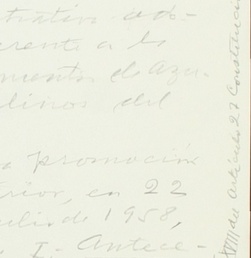 tratán ado-
erente a la
mento de azu-
linos del
promoción
rior, en 22
julio de 1958,
I- Antece-
XVIII del Artículo 27 Constitucio